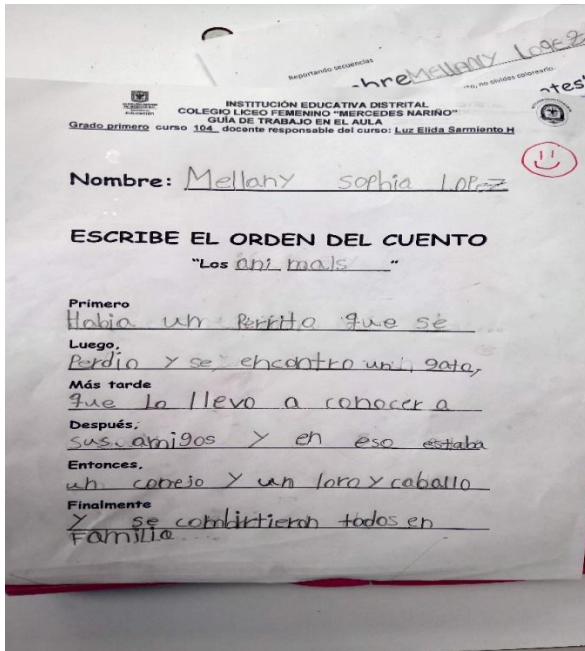 Reportando secuencias
bre Mellany Lopez
to, no olvides colorearlo.
ntes"
INSTITUCIÓN EDUCATIVA DISTRITAL
COLEGIO LICEO FEMENINO "MERCEDES NARIÑO"
GUÍA DE TRABAJO EN EL AULA
Grado primero curso 104 docente responsable del curso: Luz Elida Sarmiento H
Nombre: Mellany sophia LOPez
ESCRIBE EL ORDEN DEL CUENTO
"Los ani mals "
Primero
Habia un Perrito que se
Luego,
Perdio y se encontro un gato,
Más tarde
que Lo llevo a conocer a
Después,
sus amigos y en eso estaba
Entonces,
un conejo y un loro y caballo
Finalmente
Y se combirtieron todos en
Familia